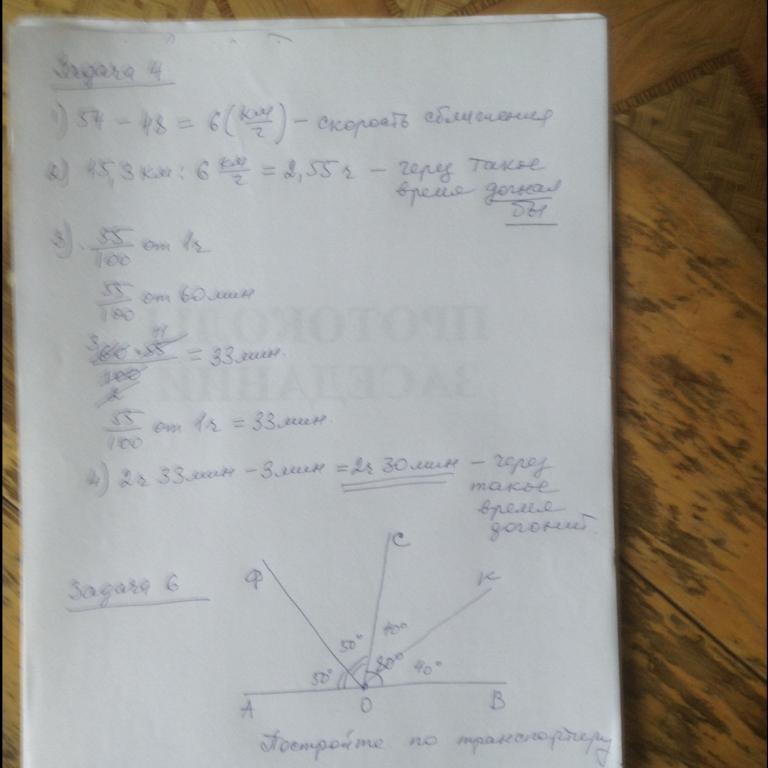 Задача 4
1) 54 - 48 = 6 (км/ч) - скорость сближения
2) 15,3 км : 6 км/ч = 2,55 ч - через такое
время догнал
бы
3) 55/100 от 1ч
55/100 от 60мин
3 11
60 · 55 / 100 = 33мин.
2
55/100 от 1ч = 33мин.
4) 2ч 33мин - 3мин = 2ч 30мин - через
такое
время
догонит.
Задача 6
Ф C К
50° 40°
50° 80° 40°
А О В
Постройте по транспортиру
ПРОТОКОЛЫ
ЗАСЕДАНИЙ